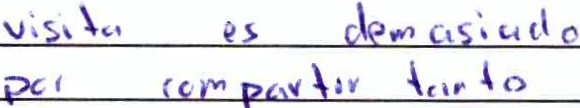 visita es demasiado
por compartir tanto